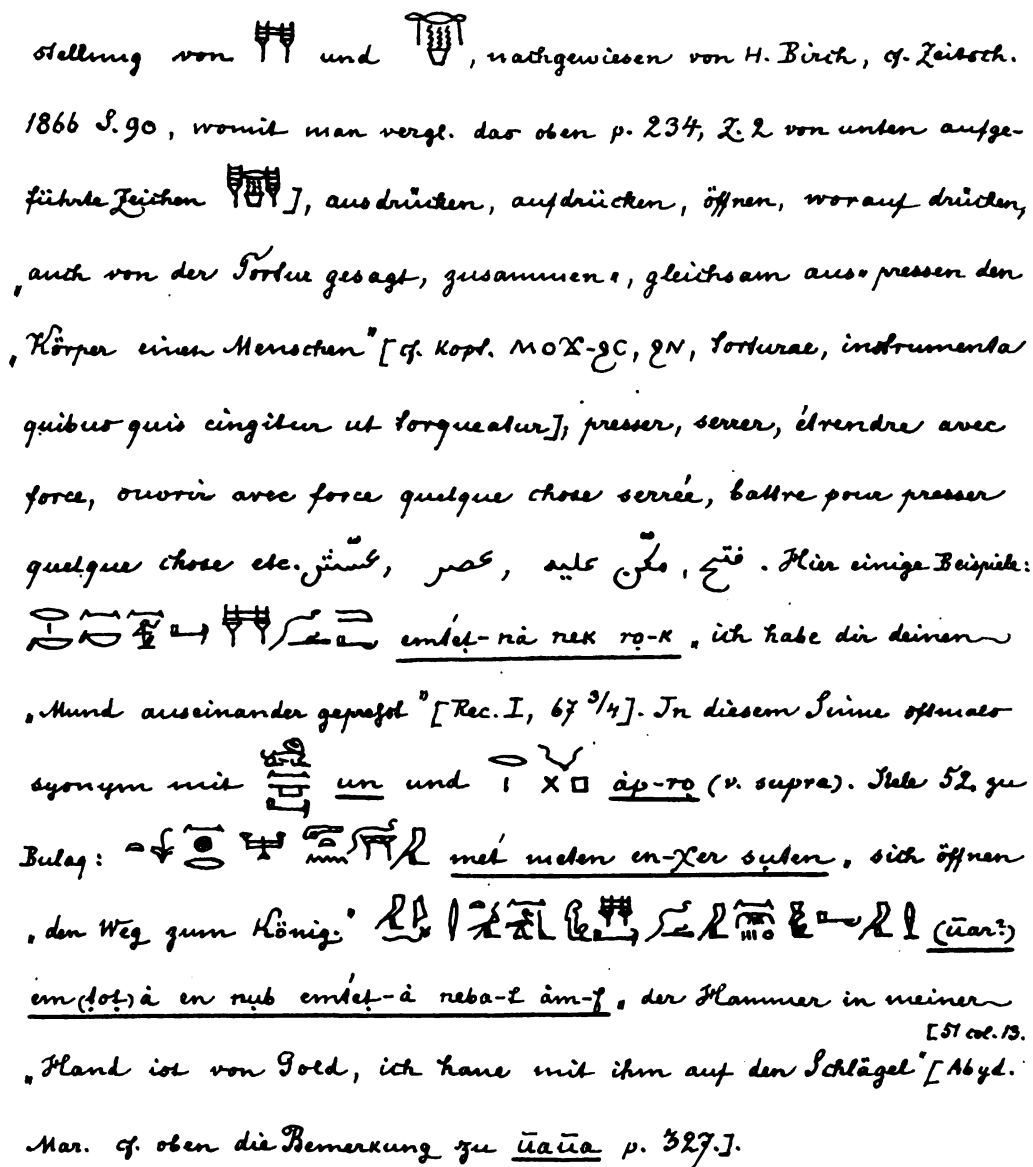 stellung von und , nachgewiesen von H. Birch, cf. Zeitsch.
1866 S. 90, womit man vergl. das oben p. 234, Z. 2 von unten aufge-
führte Zeichen ], ausdrücken, aufdrücken, öffnen, worauf drücken,
„auch von der Tortur gesagt, zusammen-, gleichsam aus-pressen den
„Körper eines Menschen" [cf. Kopt. torturae, instrumenta
quibus quis cingitur ut torqueatur]; presser, serrer, étrendre avec
force, ouvrir avec force quelque chose serrée, battre pour presser
quelque chose etc. عصر , مكّن عليه , فتح . Hier einige Beispiele:
emtet-nȧ nek ro-k „ich habe dir deinen
„Mund auseinander gepreßt" [Rec. I, 67 3/4]. In diesem Sinne oftmals
synonym mit un und ȧp-ro (v. supra). Stele 52. zu
Bulaq: met meten en-χer suten „sich öffnen
„den Weg zum König." (ūar?)
em(tot)ȧ en nub emtet-ȧ neba-t ȧm-f „der Hammer in meiner
[51 col. 13.
„Hand ist von Gold, ich haue mit ihm auf den Schlägel" [Abyd.
Mar. cf. oben die Bemerkung zu ūaūa p. 327.].